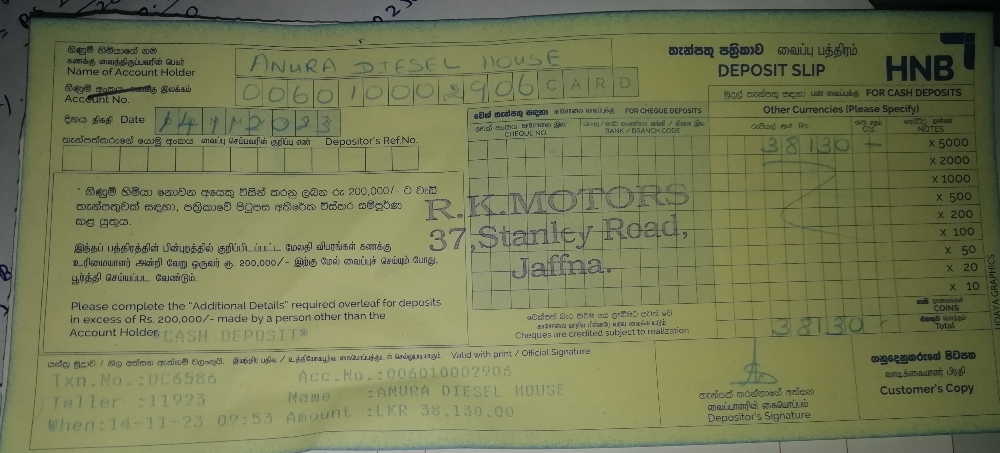 ගිණුම් හිමියාගේ නම
கணக்கு வைத்திருப்பவரின் பெயர்
Name of Account Holder
ANURA DIESEL HOUSE
තැන්පතු පත්‍රිකාව வைப்பு பத்திரம்
DEPOSIT SLIP
HNB
ගිණුම් අංකය
Account No.
006010002906 CARD
දිනය திகதி Date
14112023
තැන්පත්කරුගේ යොමු අංකය வைப்பு செய்பவரின் குறிப்பு எண் Depositor's Ref.No.
චෙක් තැන්පතු සඳහා FOR CHEQUE DEPOSITS
CHEQUE NO.
BANK / BRANCH CODE
මුදල් තැන්පතු සඳහා FOR CASH DEPOSITS
Other Currencies (Please Specify)
රුපියල් ரூபா Rs.
Cts.
NOTES
38130 -
X 5000
X 2000
X 1000
X 500
X 200
X 100
X 50
X 20
X 10
COINS
Total
38130 -
ගිණුම් හිමියා නොවන අයෙකු විසින් කරනු ලබන රු 200,000/- ට වැඩි
තැන්පතුවක් සඳහා, පත්‍රිකාවේ පිටුපස අතිරේක විස්තර සම්පූර්ණ
කළ යුතුය.
இந்தப் பத்திரத்தின் பின்புறத்தில் குறிப்பிடப்பட்ட மேலதி விபரங்கள் கணக்கு
உரிமையாளர் அன்றி வேறு ஒருவர் ரூ. 200,000/- இற்கு மேல் வைப்புச் செய்யும் போது,
பூர்த்தி செய்யப்பட வேண்டும்.
Please complete the "Additional Details" required overleaf for deposits
in excess of Rs. 200,000/- made by a person other than the
Account Holder.
*CASH DEPOSIT*
R.K.MOTORS
37,Stanley Road,
Jaffna.
Cheques are credited subject to realization
Valid with print / Official Signature
Txn.No.:DC6586 Acc.No.:006010002906
Teller :11923 Name :ANURA DIESEL HOUSE
When:14-11-23 09:53 Amount :LKR 38,130.00
තැන්පත් කරන්නාගේ අත්සන
வைப்பாளரின் கையொப்பம்
Depositor's Signature
ගනුදෙනුකරුගේ පිටපත
வாடிக்கையாளர் பிரதி
Customer's Copy